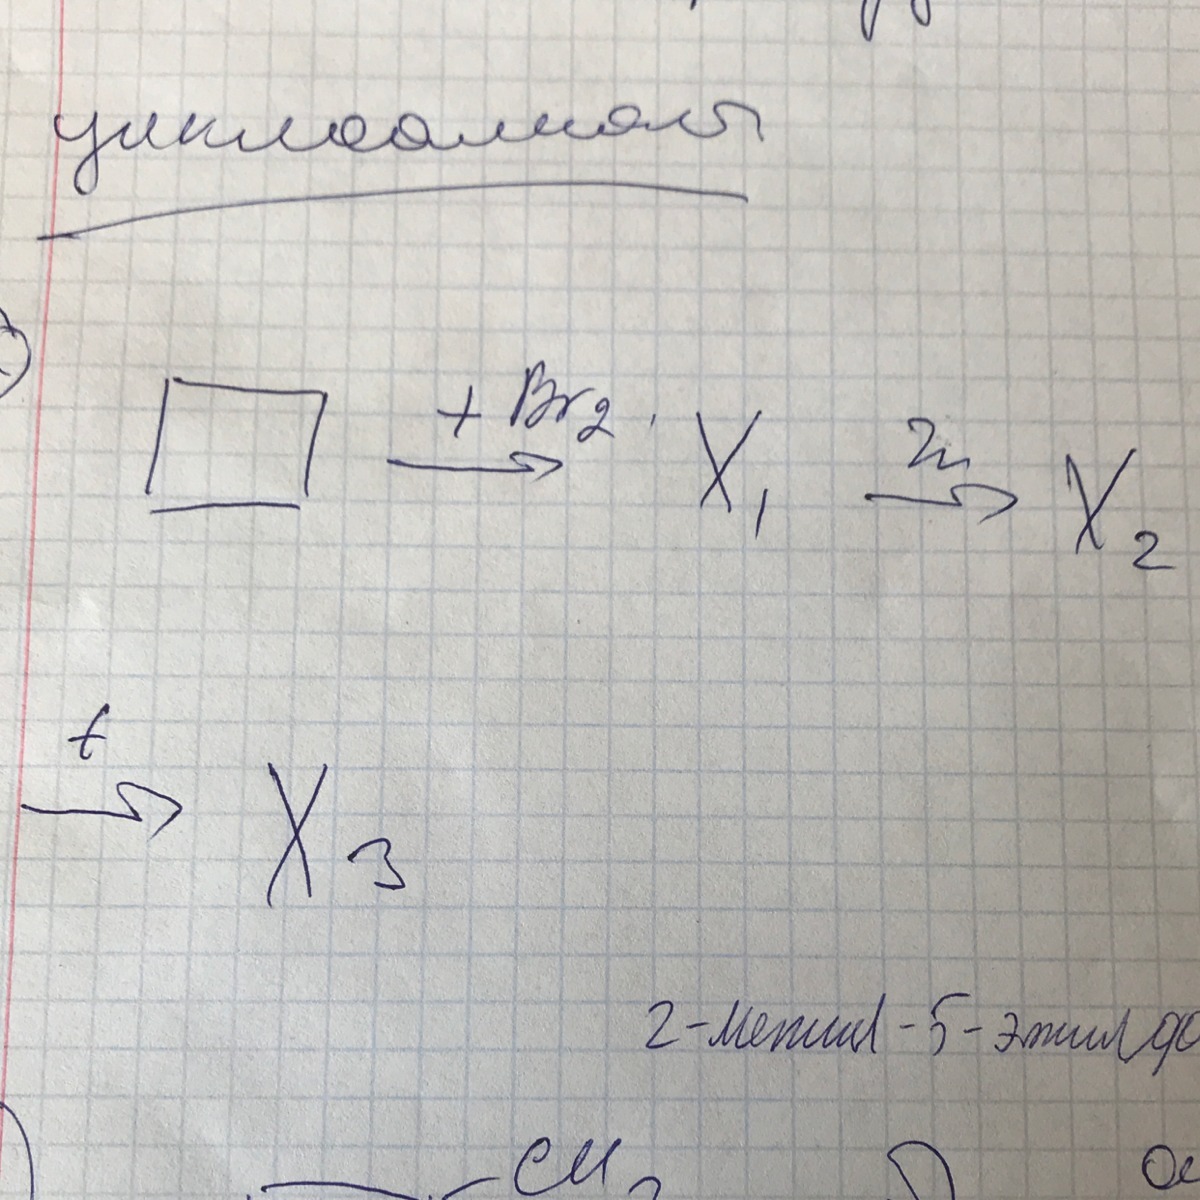 циклоалканы
+ Br2 X1 Zn X2
t X3
2-метил-5-этил
CH3